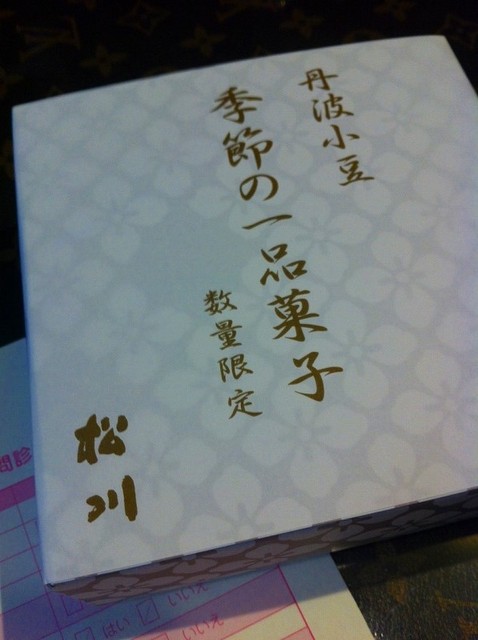 丹波小豆
季節の一品菓子
数量限定
松川
問診
はい
いいえ
いいえ